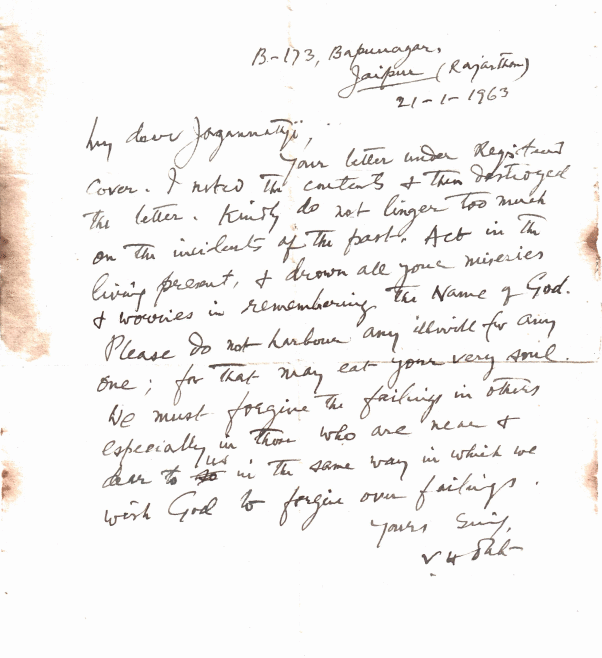 B-173, Bapunagar,
Jaipur (Rajasthan)
21-1-1963
My dear Jagannathji,
Your letter under Registered
cover. I noted the contents & then destroyed
the letter. Kindly do not linger too much
on the incidents of the past. Act in the
living present, & drown all your miseries
& worries in remembering the Name of God.
Please do not harbour any illwill for any
one; for that may eat your very soul.
We must forgive the failings in others
especially in those who are near &
dear to us in the same way in which we
wish God to forgive our failings.
Yours
V H